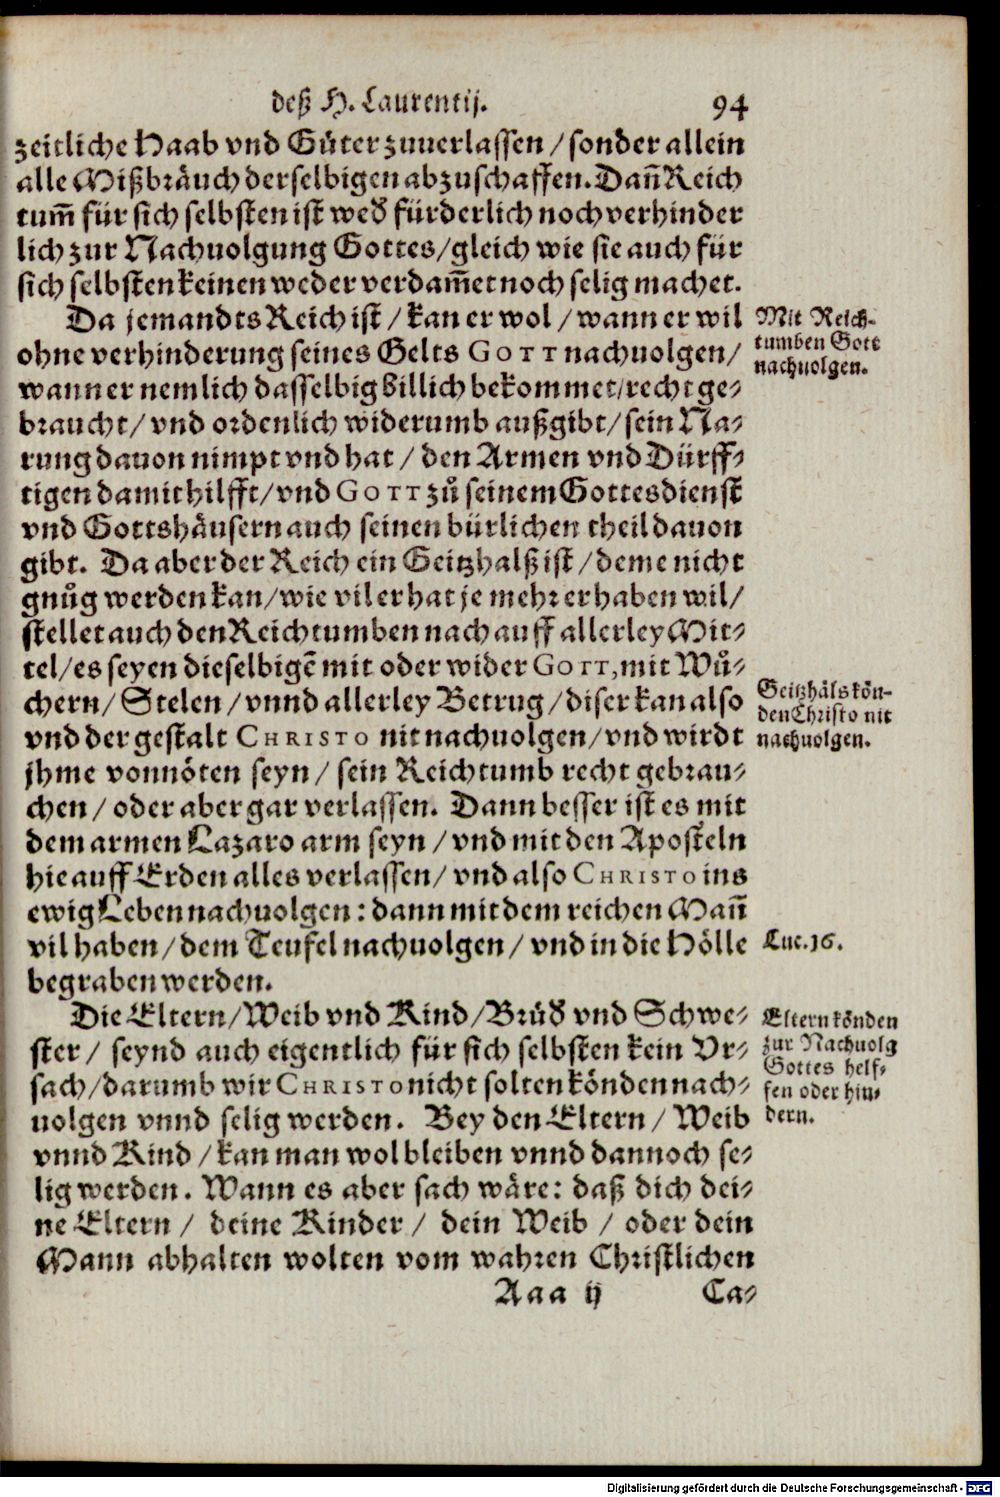 deß H. Laurentij. 94
zeitliche Haab vnd Gůter zuuerlassen / sonder allein
alle Mißbräuch derselbigen abzuschaffen. Dañ Reich
tum̃ für sich selbsten ist wed̕ fürderlich noch verhinder
lich zur Nachuolgung Gottes / gleich wie sie auch für
sich selbsten keinen weder verdam̃et noch selig machet.
Da jemandts Reich ist / kan er wol / wann er wil
ohne verhinderung seines Gelts GOTT nachuolgen /
wann er nemlich dasselbig billich bekommet / recht ge-
braucht / vnd ordenlich widerumb außgibt / sein Na-
rung dauon nimpt vnd hat / den Armen vnd Dürff-
tigen damit hilfft / vnd GOTT zů seinem Gottesdienst
vnd Gottshäusern auch seinen bürlichen theil dauon
gibt. Da aber der Reich ein Geitzhalß ist / deme nicht
gnůg werden kan / wie vil er hat je mehr er haben wil /
stellet auch den Reichtumben nach auff allerley Mit-
tel / es seyen dieselbigẽ mit oder wider GOTT, mit Wů-
chern / Stelen / vnnd allerley Betrug / diser kan also
vnd der gestalt CHRISTO nit nachuolgen / vnd wirdt
jhme vonnöten seyn / sein Reichtumb recht gebrau-
chen / oder aber gar verlassen. Dann besser ist es mit
dem armen Lazaro arm seyn / vnd mit den Aposteln
hie auff Erden alles verlassen / vnd also CHRISTO ins
ewig Leben nachuolgen : dann mit dem reichen Mañ
vil haben / dem Teufel nachuolgen / vnd in die Hölle
begraben werden.
Die Eltern / Weib vnd Kind / Brůd̕ vnd Schwe-
ster / seynd auch eigentlich für sich selbsten kein Vr-
sach / darumb wir CHRISTO nicht solten könden nach-
uolgen vnnd selig werden. Bey den Eltern / Weib
vnnd Kind / kan man wol bleiben vnnd dannoch se-
lig werden. Wann es aber sach wäre : daß dich dei-
ne Eltern / deine Kinder / dein Weib / oder dein
Mann abhalten wolten vom wahren Christlichen
Aaa ij Ca-
Mit Reich-
tumben Gott
nachuolgen.
Geitzhäls kön-
den Christo nit
nachuolgen.
Luc. 16.
Eltern könden
zur Nachuolg
Gottes helf-
fen oder hin-
dern.
Digitalisierung gefördert durch die Deutsche Forschungsgemeinschaft - DFG